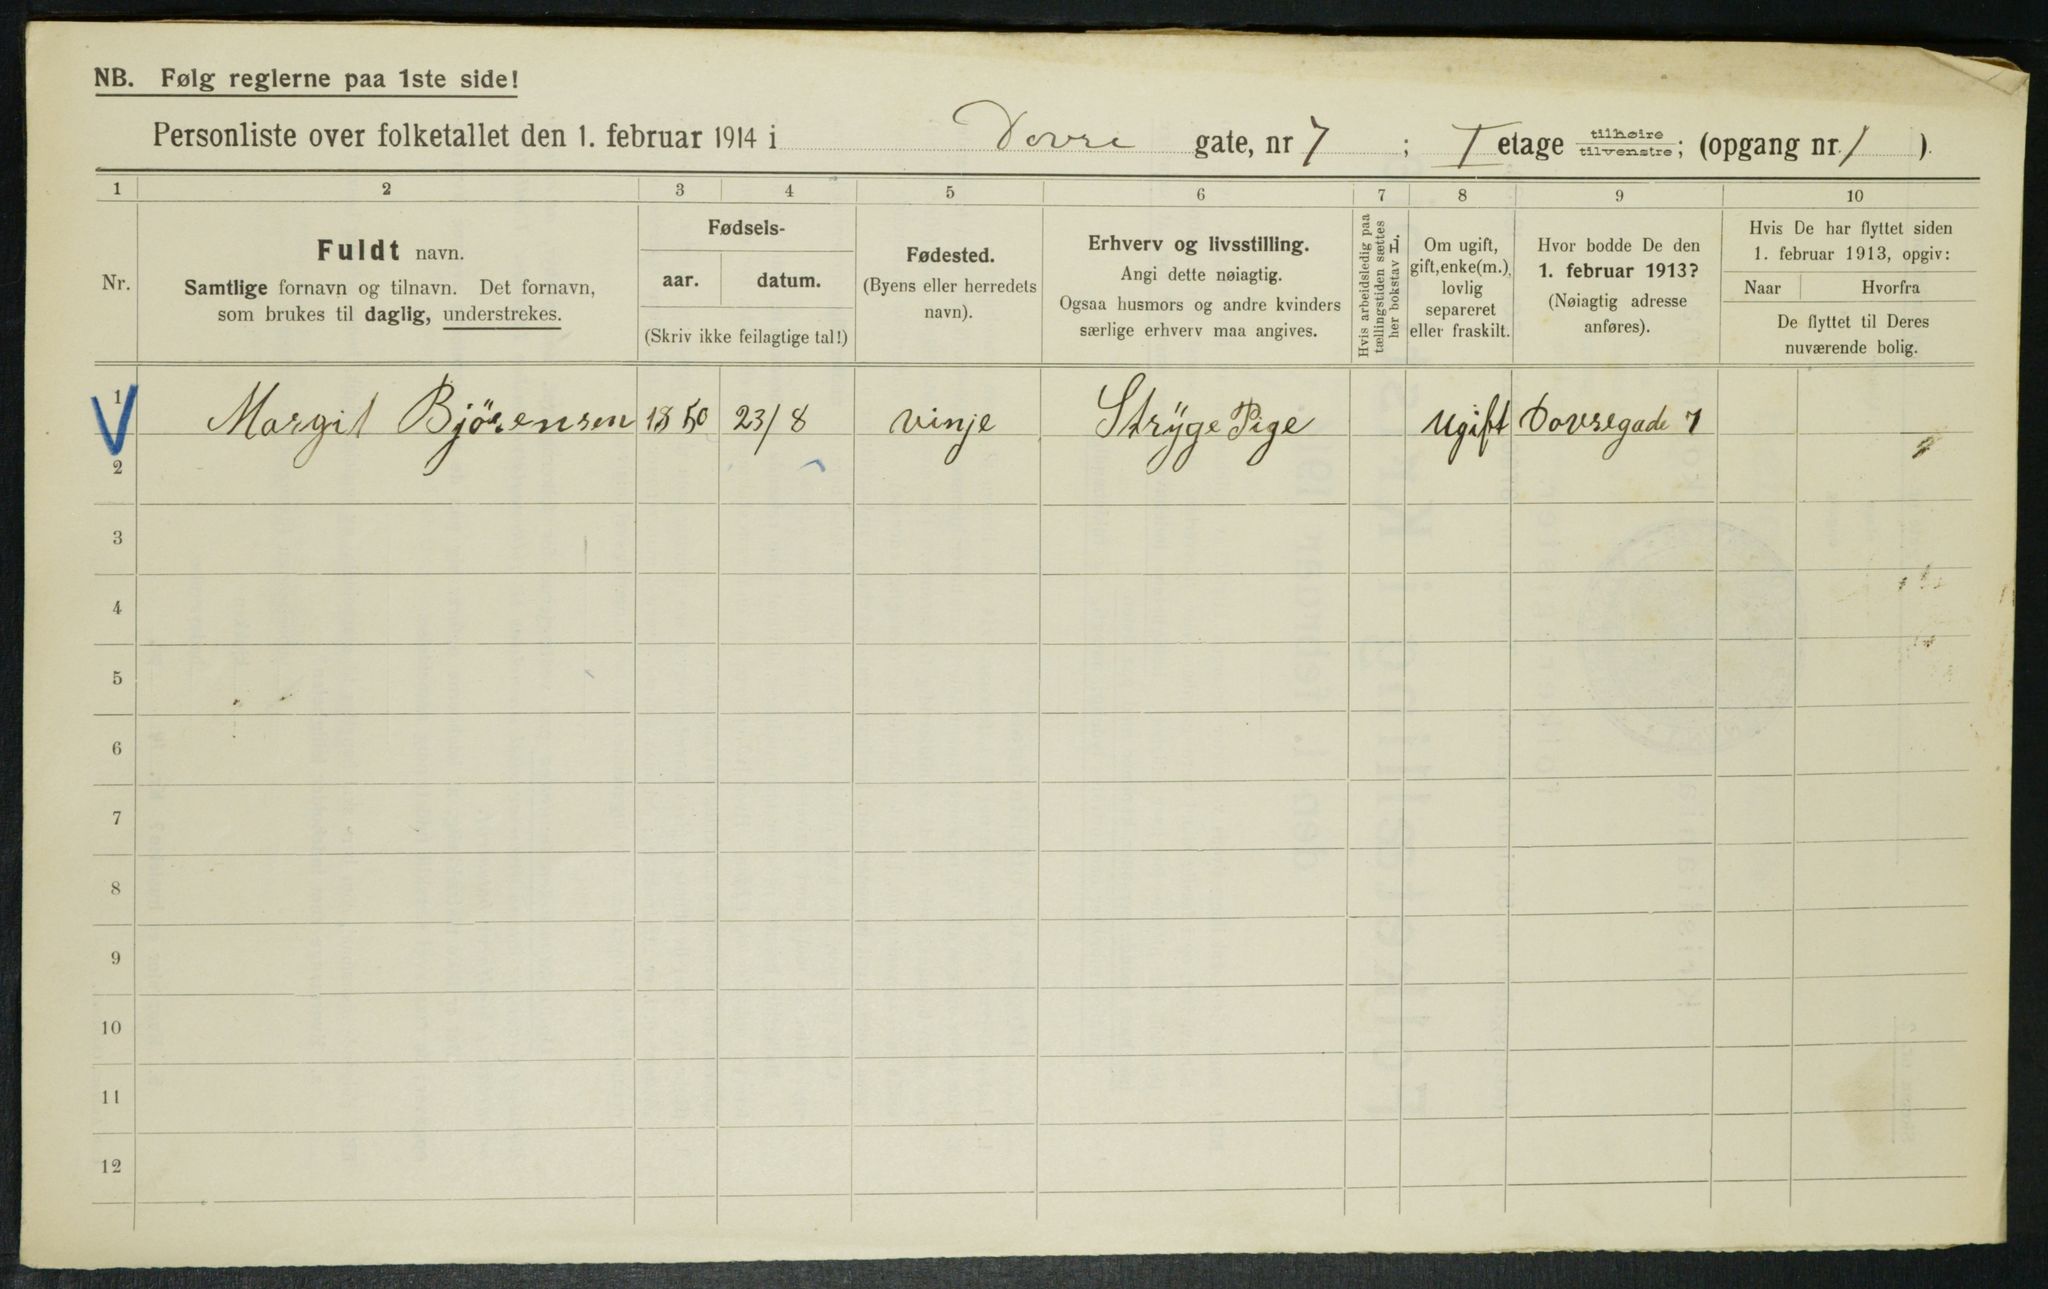 NB. Følg reglerne paa 1ste side!
Personliste over folketallet den 1. februar 1914 i Dovre gate, nr 7 ; I etage tilhøire/tilvenstre; (opgang nr. 1 ).
1 2 3 4 5 6 7 8 9 10
Nr.
Fuldt navn.
Samtlige fornavn og tilnavn. Det fornavn,
som brukes til daglig, understrekes.
Fødsels-
aar. datum.
(Skriv ikke feilagtige tal!)
Fødested.
(Byens eller herredets
navn).
Erhverv og livsstilling.
Angi dette nøiagtig.
Ogsaa husmors og andre kvinders
særlige erhverv maa angives.
Hvis arbeidsledig paa
tællingstiden sættes
her bokstav L.
Om ugift,
gift, enke(m.),
lovlig
separeret
eller fraskilt.
Hvor bodde De den
1. februar 1913?
(Nøiagtig adresse
anføres).
Hvis De har flyttet siden
1. februar 1913, opgiv:
Naar Hvorfra
De flyttet til Deres
nuværende bolig.
1 Margit Bjørensen 1850 23/8 Vinje Strÿge Pige Ugift Dovregade 7
2
3
4
5
6
7
8
9
10
11
12